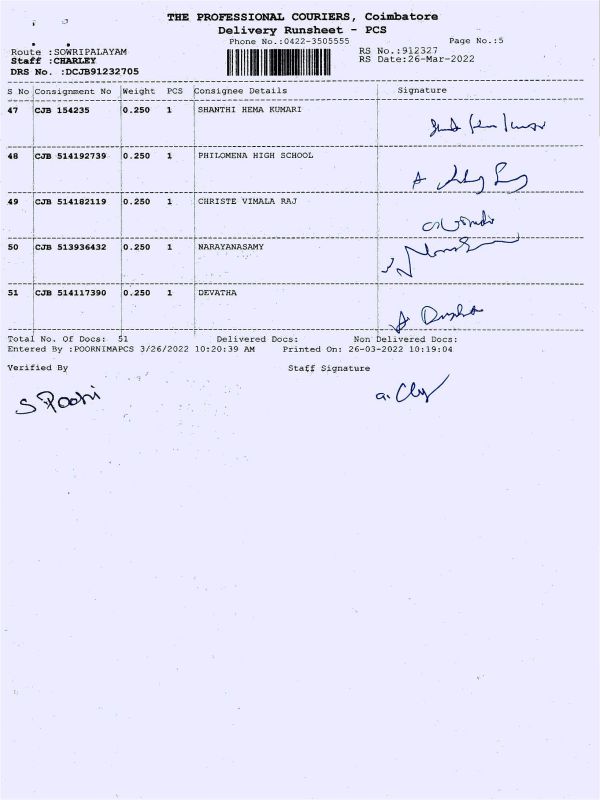 THE PROFESSIONAL COURIERS, Coimbatore
Delivery Runsheet - PCS
Phone No.:0422-3505555 Page No.:5
Route :SOWRIPALAYAM RS No.:912327
Staff :CHARLEY RS Date:26-Mar-2022
DRS No. :DCJB91232705
S No Consignment No Weight PCS Consignee Details Signature
47 CJB 154235 0.250 1 SHANTHI HEMA KUMARI
48 CJB 514192739 0.250 1 PHILOMENA HIGH SCHOOL
49 CJB 514182119 0.250 1 CHRISTE VIMALA RAJ
50 CJB 513936432 0.250 1 NARAYANASAMY
51 CJB 514117390 0.250 1 DEVATHA
Total No. Of Docs: 51 Delivered Docs: Non Delivered Docs:
Entered By :POORNIMAPCS 3/26/2022 10:20:39 AM Printed On: 26-03-2022 10:19:04
Verified By Staff Signature
S.Poorni